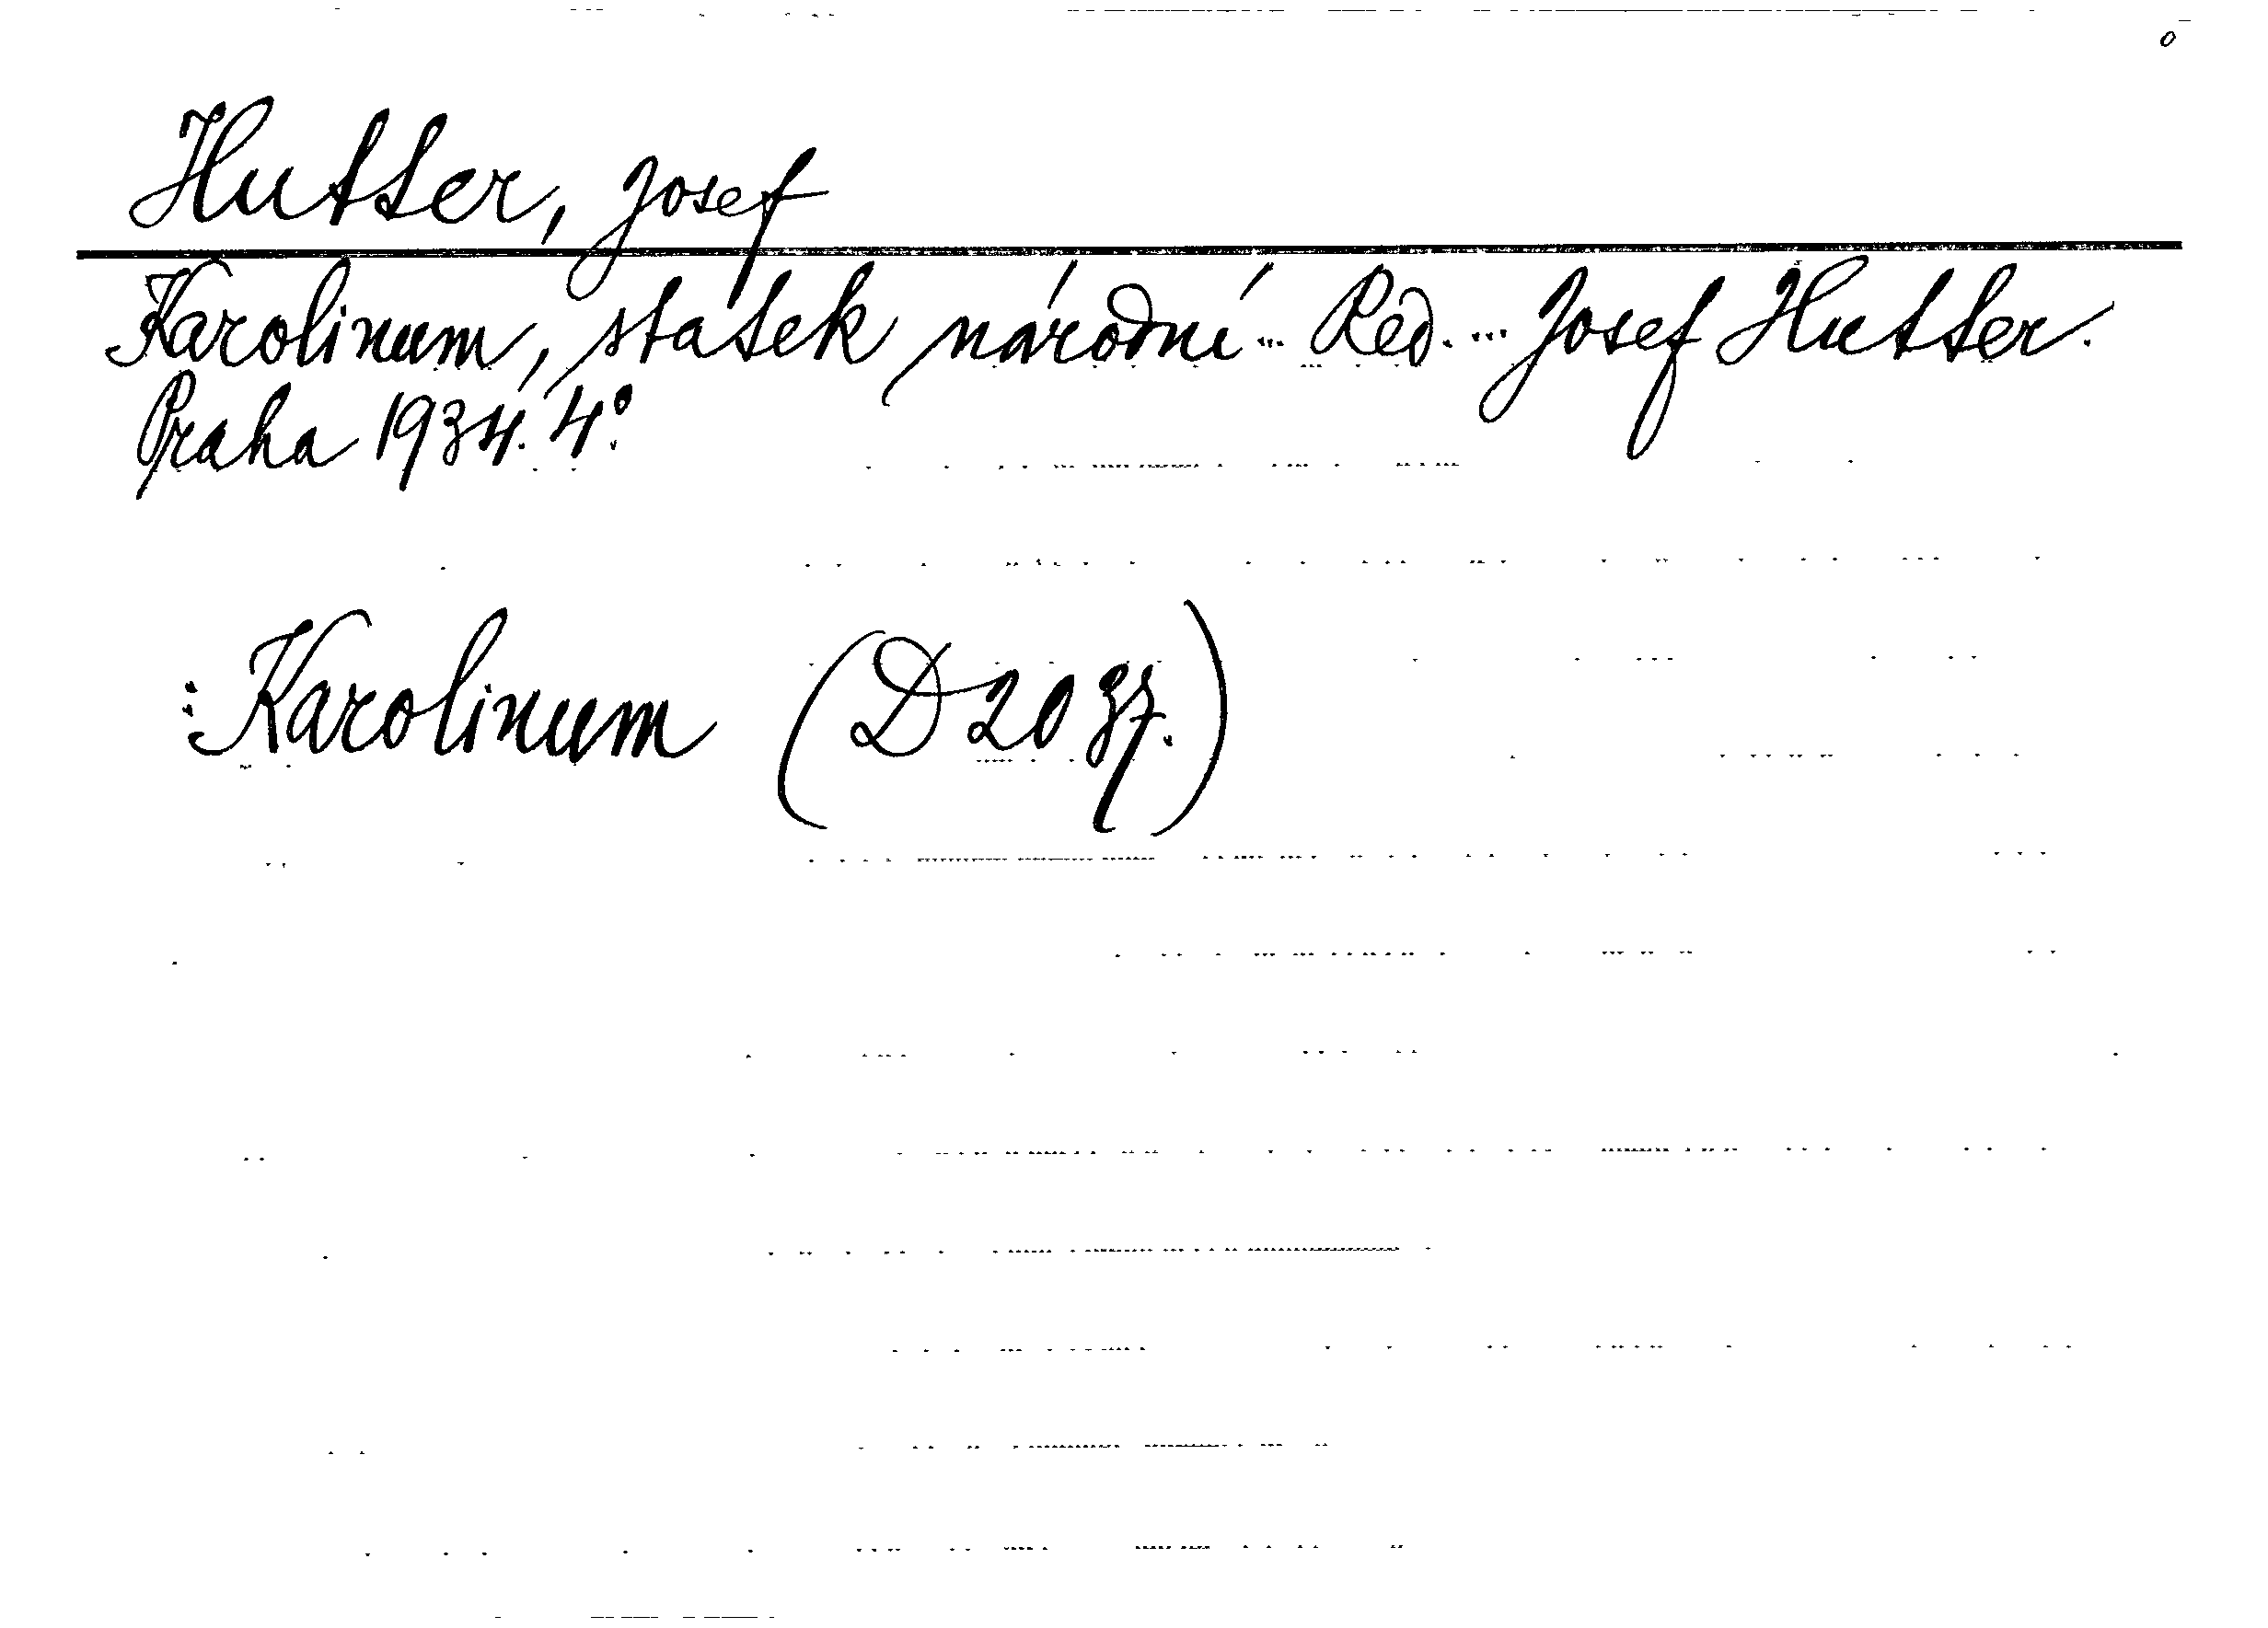 Hutter, Josef
Karolinum, statek národní ... Red. ... Josef Hutter.
Praha 1934. 4°.
: Karolinum (D 20